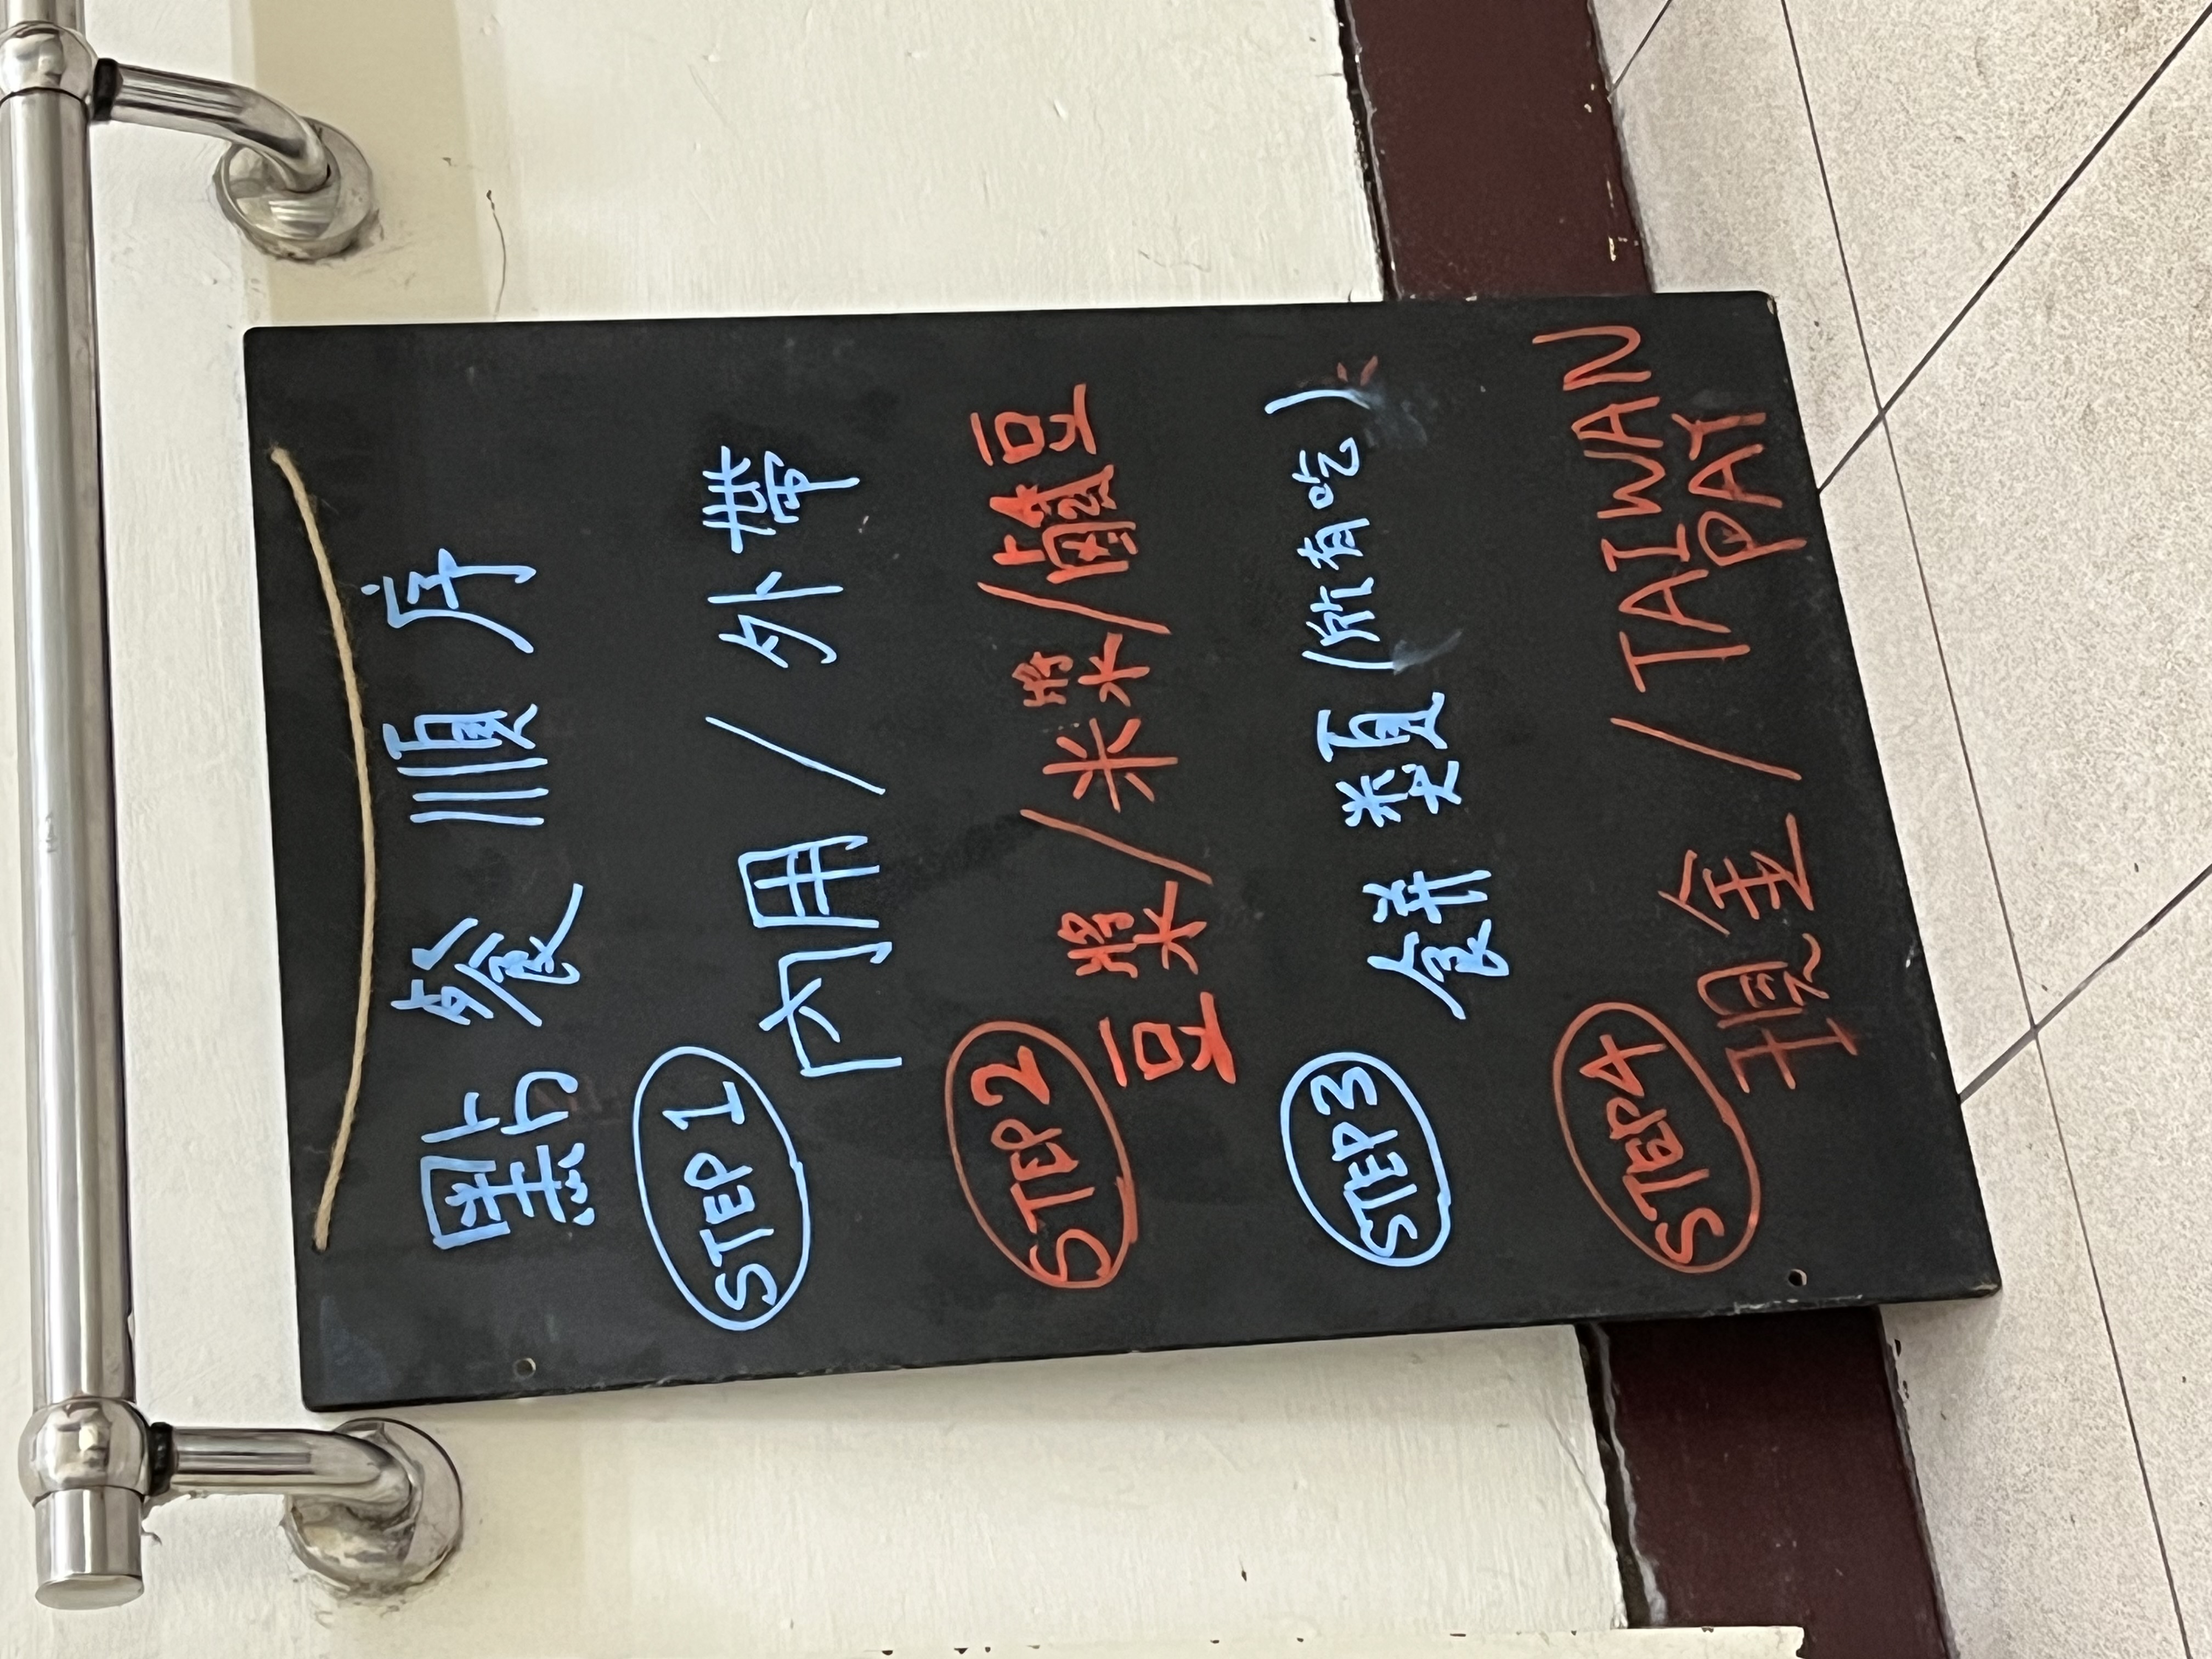 點餐順序
STEP 1
內用 / 外帶
STEP 2
豆漿/米漿/鹹豆
STEP 3
餅類(所有吃)
STEP 4
現金 / TAIWAN
PAY